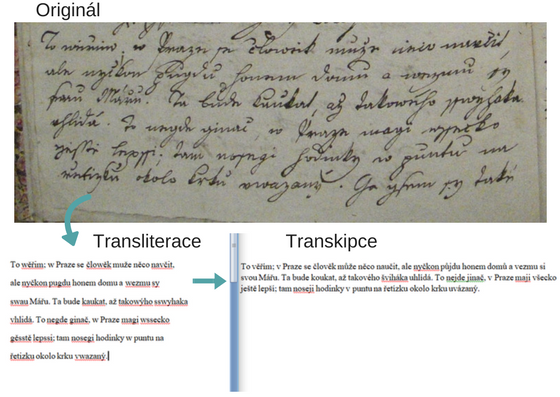 Originál
To wěřim; w Praze se člowěk muže něco navčit,
ale nyčkon pugdu honem domu a wezmu sy
swau Mářu. Ta bude kaukat, až takowýho sswyhaka
vhlidá. To negde ginač, w Praze magi wssecko
gěsstě lepssi; tam nosegi hodinky w puntu na
řetizku okolo krku vwazaný. Ga gsem sy také
Transliterace
To wěřim; w Praze se člowěk muže něco navčit,
ale nyčkon pugdu honem domu a wezmu sy
swau Mářu. Ta bude kaukat, až takowýho sswyhaka
vhlidá. To negde ginač, w Praze magi wssecko
gěsstě lepssi; tam nosegi hodinky w puntu na
řetizku okolo krku vwazaný.
Transkipce
To věřim; v Praze se člověk může něco naučit, ale nyčkon půjdu honem domů a vezmu si
svou Mářu. Ta bude koukat, až takového šviháka uhlidá. To nejde jinač, v Praze maji všecko
ještě lepší; tam noseji hodinky v puntu na řetizku okolo krku uvázaný.